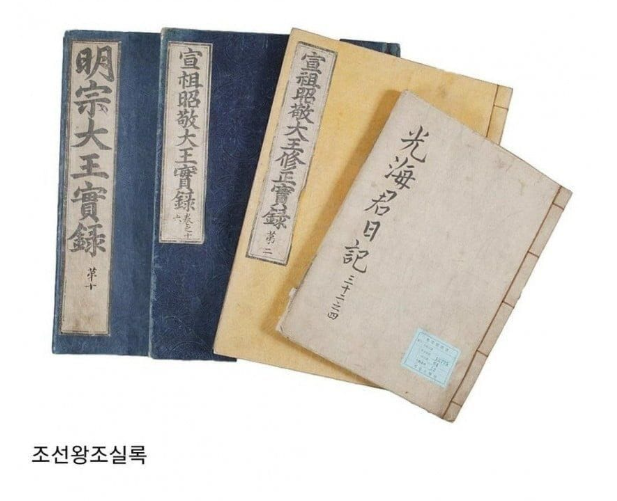 明宗大王實錄
第十
宣祖昭敬大王實錄
宣祖昭敬大王修正實錄
第二
光海君日記
三十二之四
조선왕조실록